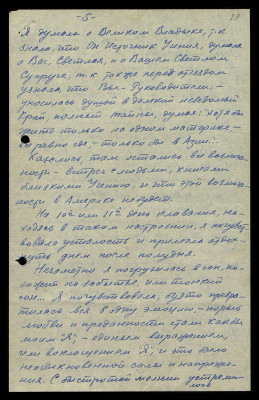 -5-
Я думала о Великом Владыке, т.к.
знала, что Он Источник Учения, думала
о Вас, Светлая, и о Вашем Светлом
Супруге, т.к. также перед отъездом
узнала что Вы - Руководители, -
уносилась душой в далекий неведомый
Край, полный тайны, думая: хотя бы
жить только на одном материке -
равно где, - только бы в Азии.
Казалось, там остались все возмож-
ности - встреч с людьми, книгами
близкими Учению, и что этой возмож-
ности в Америке не будет.
На 10й или 11й день плавания, на-
ходясь в таком настроении, я почувст-
вовала усталость и прилегла отдох-
нуть днем после полудня.
Незаметно я погрузилась в сон, по-
хожий на забытье, или тонкий
сон... Я почувствовала, будто превра-
тилась вся в одну эмоцию - порыв
любви и преданности стал как бы
моим "Я", - одиноким выражением,
или воплощением "Я", и это было
необыкновенной силы и напряже-
ния. С быстротой молнии устреми-
лось